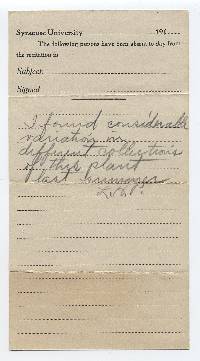 Syracuse University 191
The following persons have been absent to-day from
the recitation in
Subject
Signed
I found considerable
variation in
different collections
of this plant
last Summer.